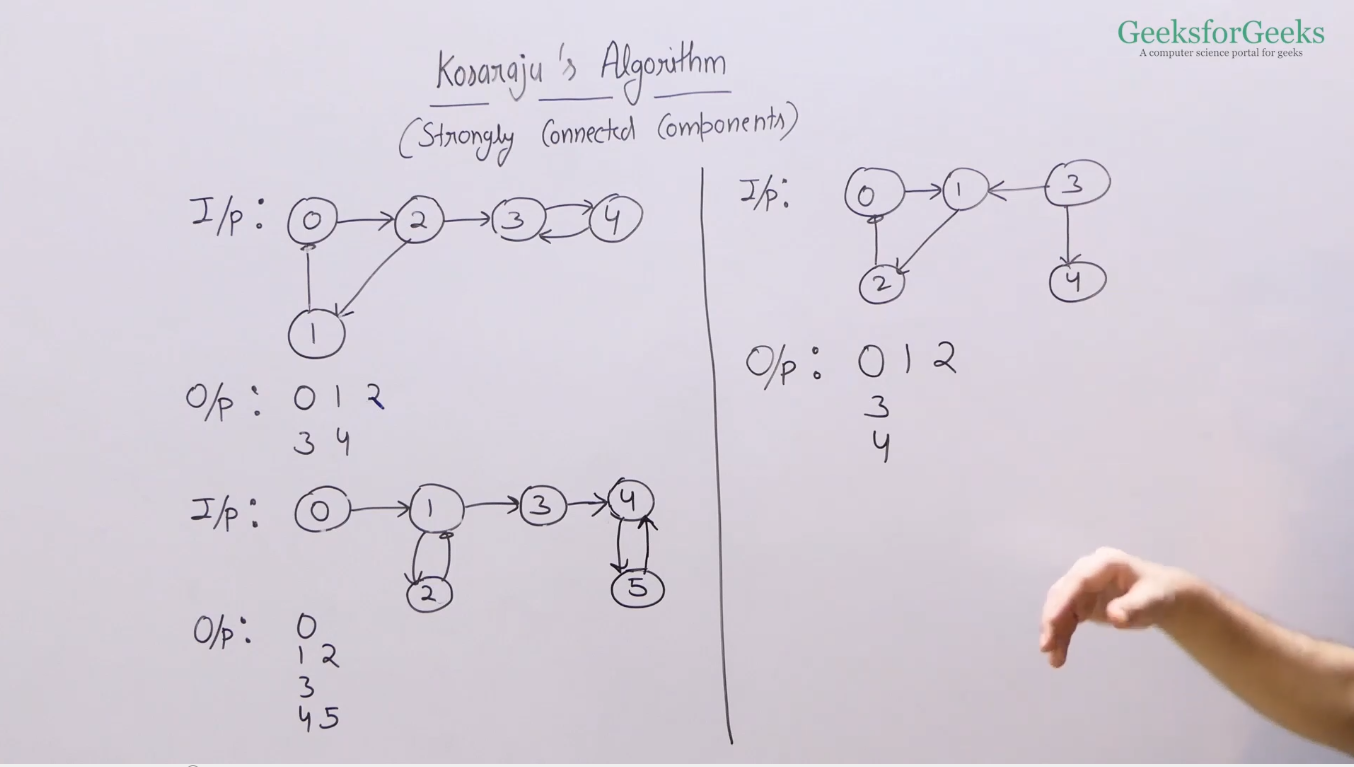 GeeksforGeeks
A computer science portal for geeks
Kosaraju's Algorithm
(Strongly Connected Components)
I/p: 0 2 3 4
1
O/p: 0 1 2
3 4
I/p: 0 1 3 4
2 5
O/p: 0
1 2
3
4 5
I/p: 0 1 3
2 4
O/p: 0 1 2
3
4